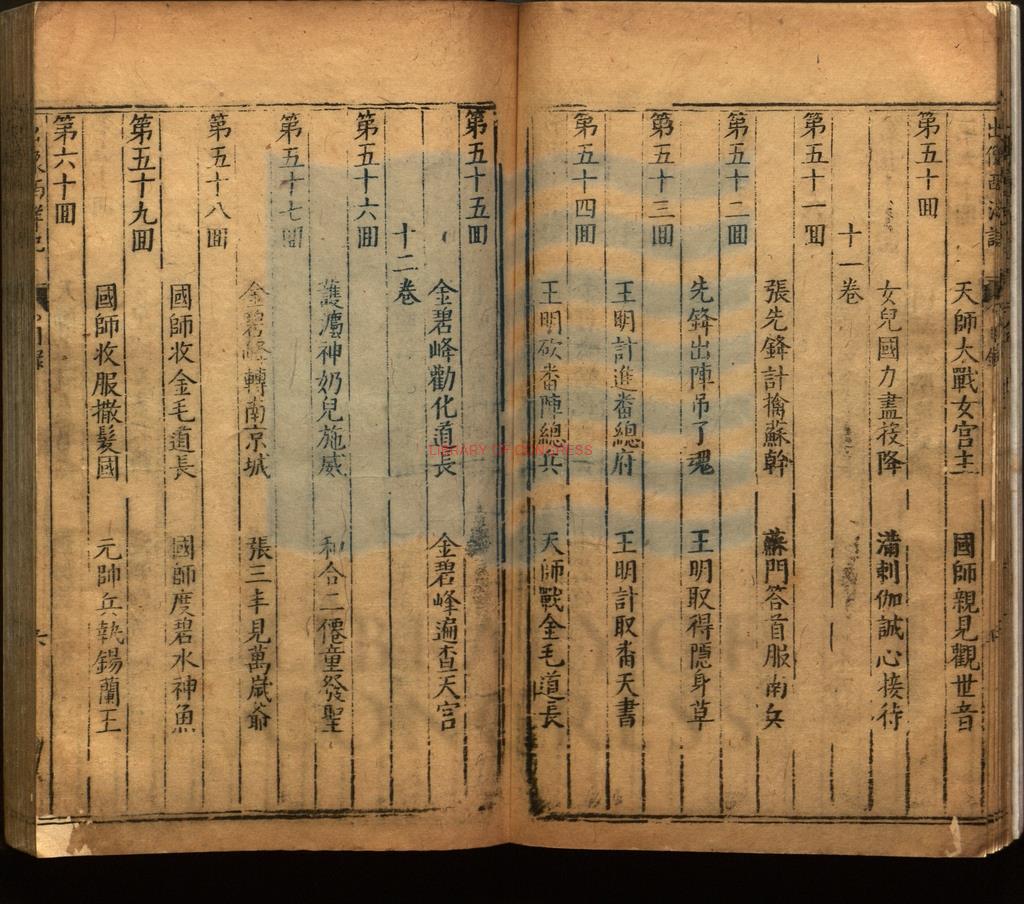 天師大戰女宮主　國師親見觀世音
第五十回
女兒國力盡投降　滿剌伽誠心接待
十一卷
第五十一回
張先鋒計擒蘇幹　蘇門答首服南兵
第五十二回
先鋒出陣吊了魂　王明取得隱身草
第五十三回
王明計進番總府　王明計取番天書
第五十四回
王明砍番陣總兵　天師戰金毛道長
第五十五回
金碧峰勸化道長　金碧峰遍查天宮
十二卷
第五十六回
護瀛神奶兒施威　和合二僊童發聖
第五十七回
金碧峰轉南京城　張三丰見萬歲爺
第五十八回
國師收金毛道長　國師度碧水神魚
第五十九回
國師收服撒髮國　元帥兵執錫蘭王
第六十回
LIBRARY OF CONGRESS